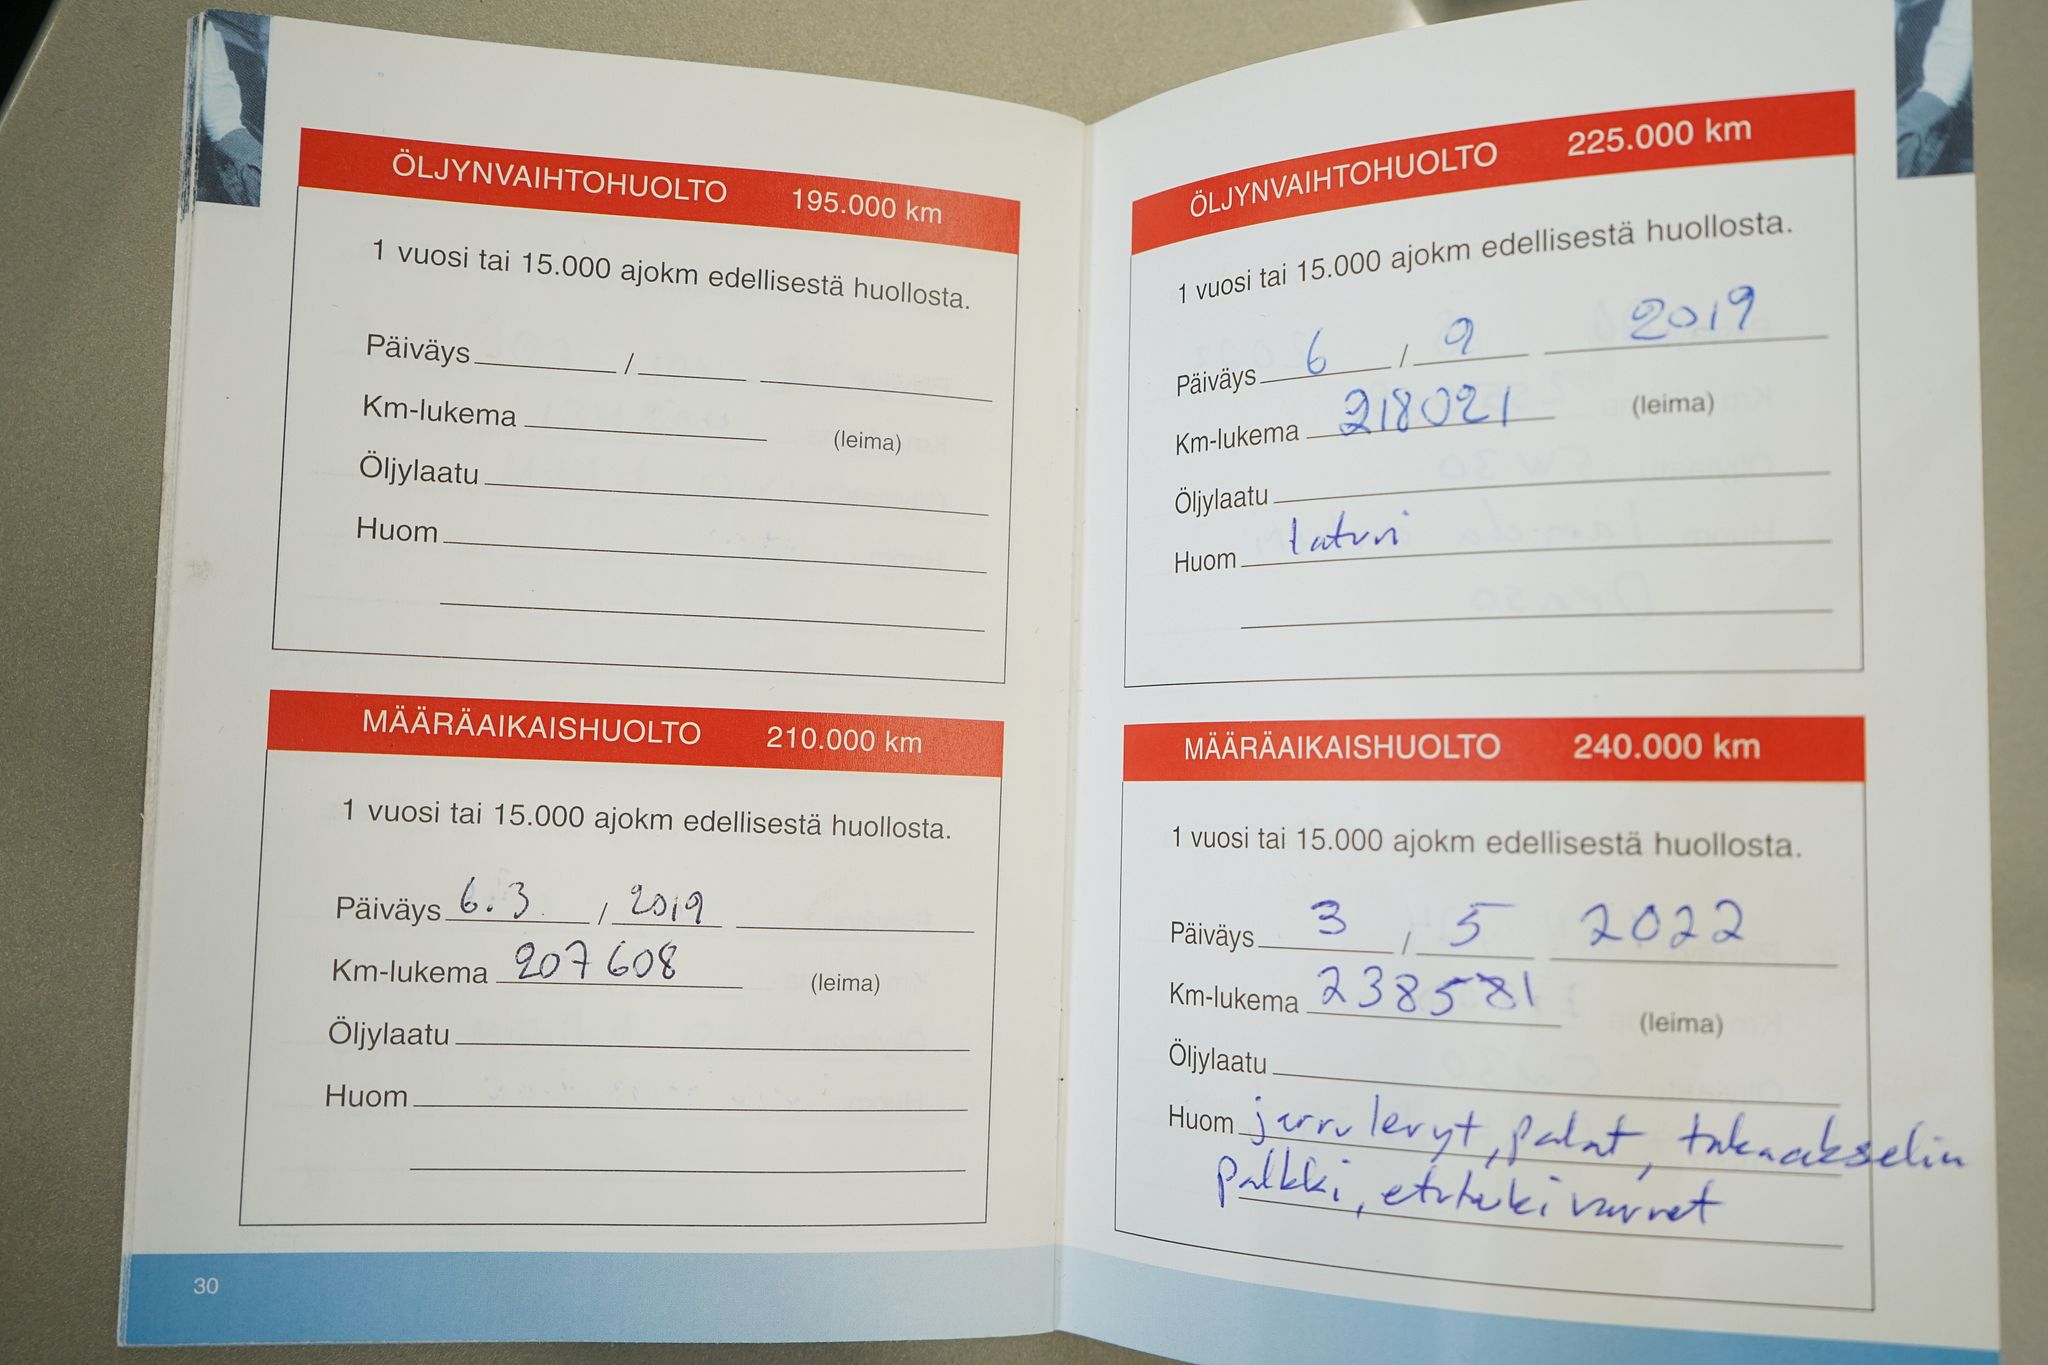 ÖLJYNVAIHTOHUOLTO 195.000 km
1 vuosi tai 15.000 ajokm edellisestä huollosta.
Päiväys /
Km-lukema (leima)
Öljylaatu
Huom
MÄÄRÄAIKAISHUOLTO 210.000 km
1 vuosi tai 15.000 ajokm edellisestä huollosta.
Päiväys 6.3 / 2019
Km-lukema 207 608 (leima)
Öljylaatu
Huom
30
ÖLJYNVAIHTOHUOLTO 225.000 km
1 vuosi tai 15.000 ajokm edellisestä huollosta.
Päiväys 6 / 9 2019
Km-lukema 218021 (leima)
Öljylaatu
Huom laturi
MÄÄRÄAIKAISHUOLTO 240.000 km
1 vuosi tai 15.000 ajokm edellisestä huollosta.
Päiväys 3 / 5 2022
Km-lukema 238581 (leima)
Öljylaatu
Huom jarrulevyt, palat, takaakselin
palkki, etutukivarret